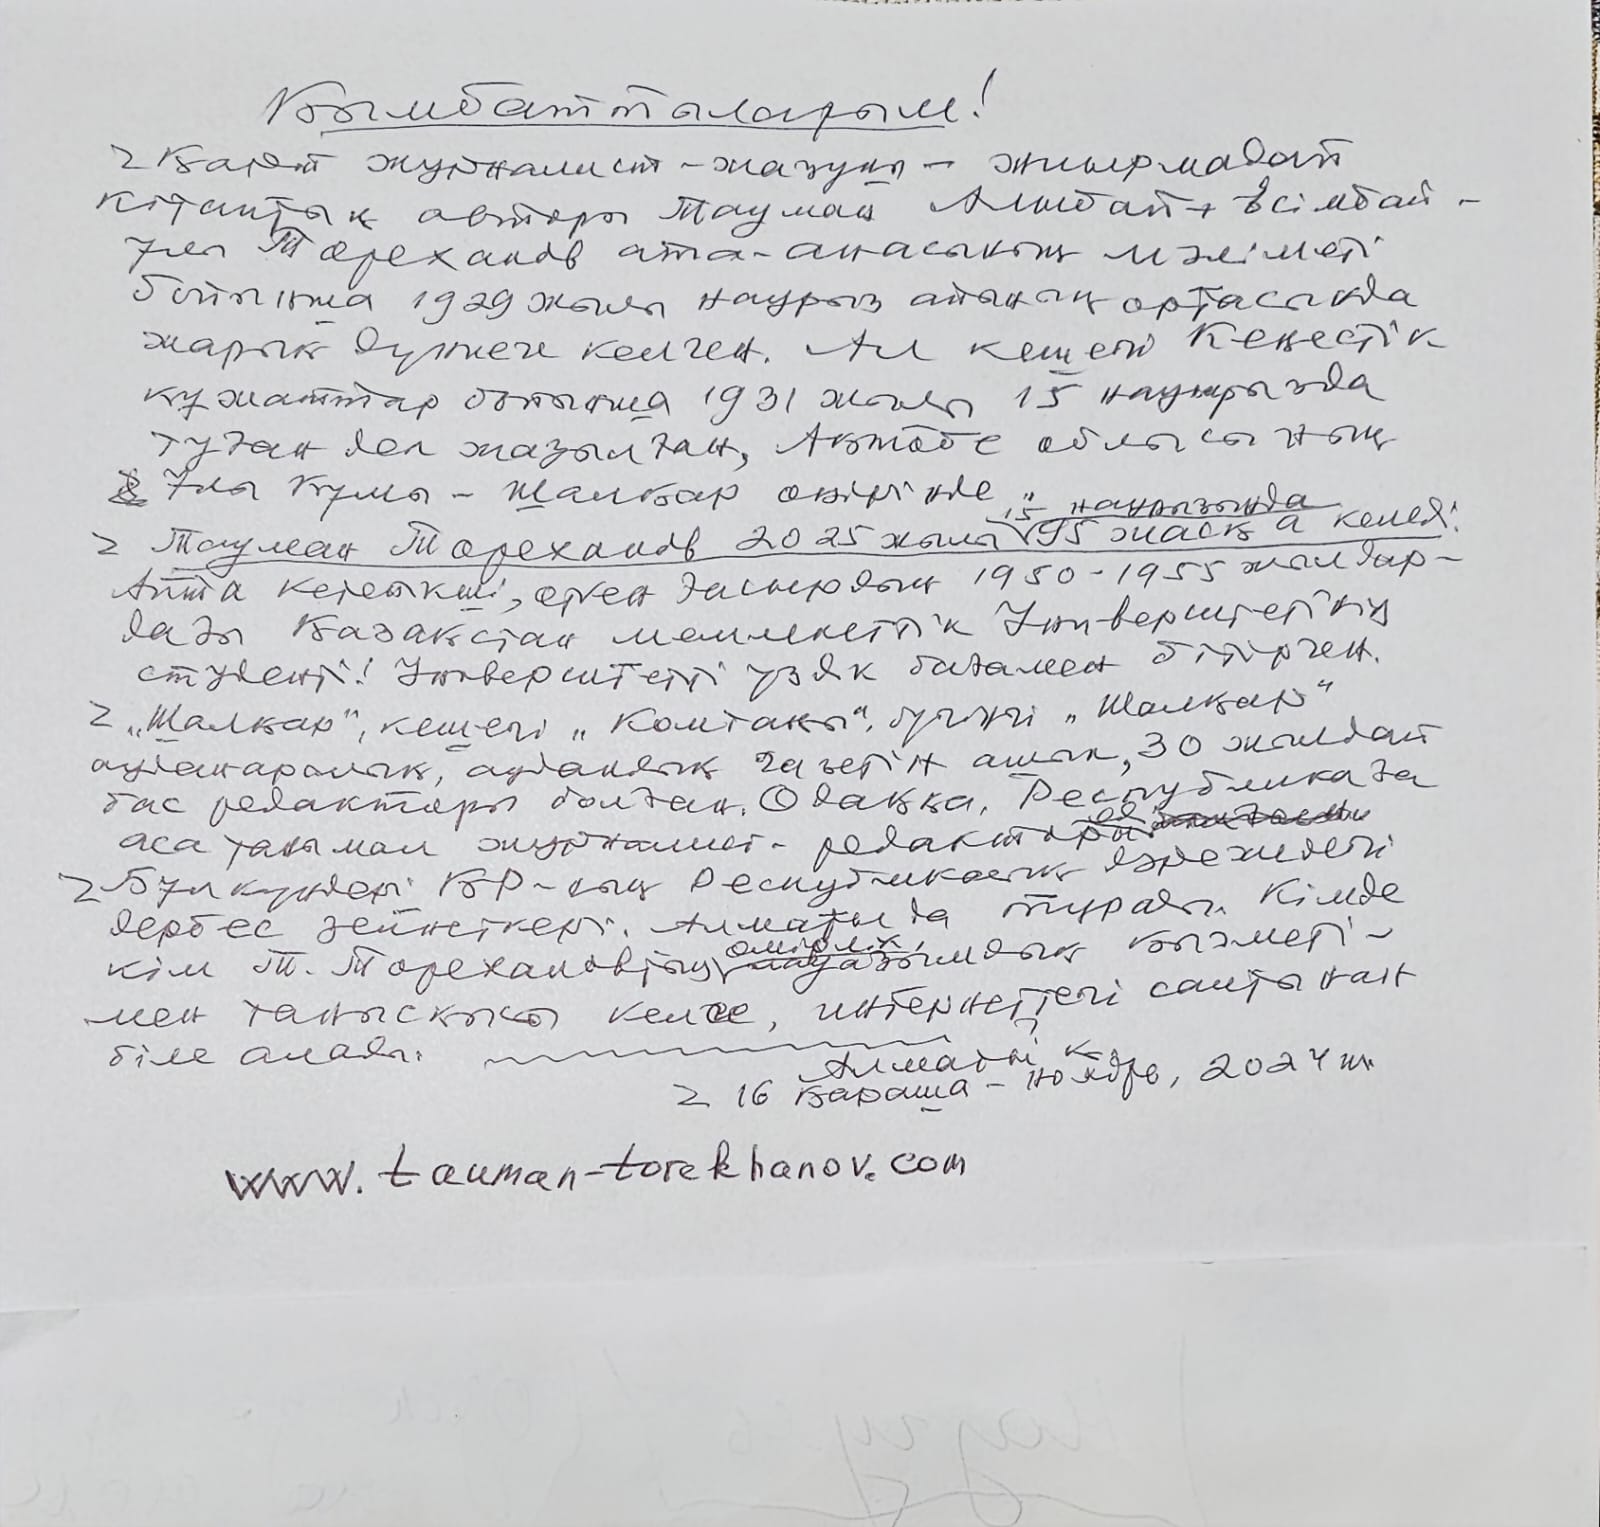 Қымбаттыларым!
Қарт журналист-жазушы – жиырмадай
кітаптың авторы Тауман Алыбай + Есімбай-
ұлы Төреханов ата-анасының мәліметі
бойынша 1929 жылы наурыз айының ортасында
жарық дүниеге келген. Ал кешегі Кеңестік
құжаттар бойынша 1931 жылы 15 наурызда
туған деп жазылған, Ақтөбе облысының
Ұлы құмы – Шалқар өңірінде
"15" наурызында
Тауман Төреханов 2025 жылы 95 жасқа келеді!
Айта кетейікші, өткен ғасырдың 1950-1955 жылдар-
дағы Қазақстан мемлекеттік Университетінің
студенті! Университетті үздік бағамен бітірген.
„Шалқар", кешегі „Көмтаңы", бүгінгі „Шалқар"
ауданаралық, аудандық газетін ашып, 30 жылдай
бас редакторы болған. Одаққа, Республикаға
аса танымал журналист-редакторы еді
Бұл күндері ҚР-ның Республикалық дәрежедегі
дербес зейнеткері. Алматыда тұрады. Кімде
кім Т. Төрехановтың өмірлік, лауазымдық қызметі-
мен танысқысы келсе, интернеттегі сайтынан
біле алады.
Алматы қ
16 қараша-ноябрь, 2024 ж.
www.tauman-torekhanov.com